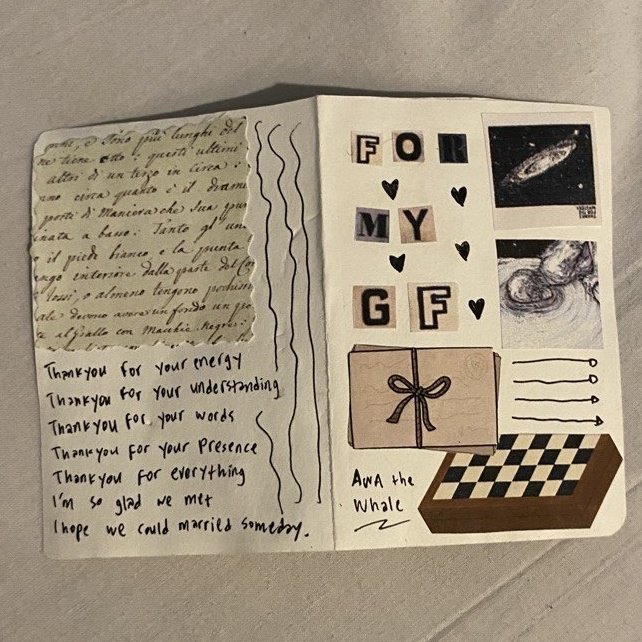 e, e Sono più lunghi del
me tiene otto: questi ultimi
altri di un terzo in circa:
uno circa quanto è il
porti di Maniera che Sua
inata a basso: Tanto gl
il piede bianco, e la punta
interiore dalla parte del
rossi, o almeno tengono pochis
ale devono avere un fondo un
te al giallo con Macchie Negre:
Thankyou for your energy
Thankyou for your understanding
Thankyou for your words
Thankyou for your Presence
Thankyou for everything
I'm so glad we met
I hope we could married someday.
FOR
MY
GF
AWA the
Whale